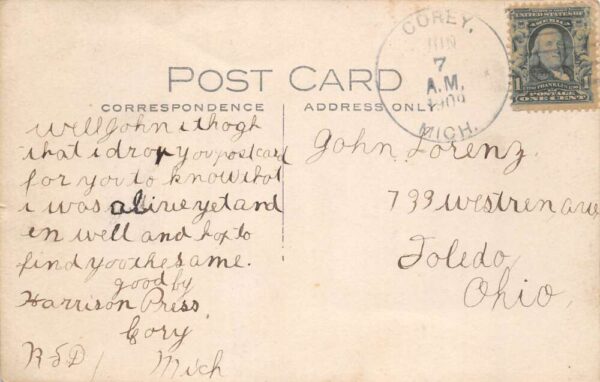 COREY,
JUN
7
A.M.
1909
MICH.
UNITED STATES OF AMERICA
1 FRANKLIN 1
POSTAGE
ONE CENT
POST CARD
CORRESPONDENCE
ADDRESS ONLY
well John i thogh
that i drop you postcard
for you to know that
i was alive yet and
en well and hop to
find you the same.
good by
Harrison Press,
Cory
R F D 1 Mich
John Lorenz.
799 westren ave
Toledo,
Ohio,